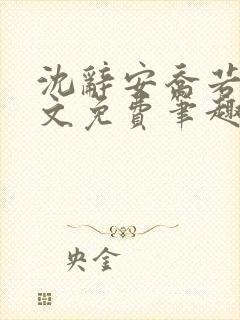 沈辞安乔若
文免费笔趣
央金